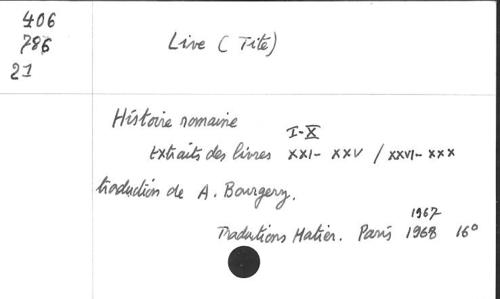 406
786
21
Live (Tite)
Histoire romaine
I-X
Extraits des livres XXI-XXV / XXVI-XXX
traduction de A. Bourgery.
1967
Traductions Hatier. Paris 1968 16°